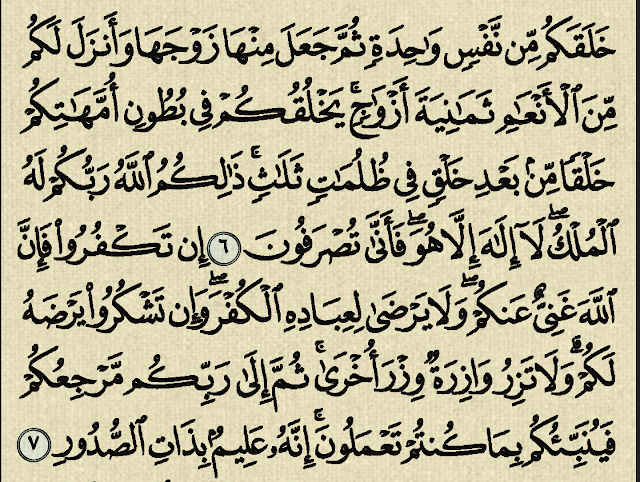 خَلَقَكُم مِّن نَّفْسٍ وَٰحِدَةٍ ثُمَّ جَعَلَ مِنْهَا زَوْجَهَا وَأَنزَلَ لَكُم
مِّنَ ٱلْأَنْعَٰمِ ثَمَٰنِيَةَ أَزْوَٰجٍ ۚ يَخْلُقُكُمْ فِى بُطُونِ أُمَّهَٰتِكُمْ
خَلْقًا مِّنۢ بَعْدِ خَلْقٍ فِى ظُلُمَٰتٍ ثَلَٰثٍ ۚ ذَٰلِكُمُ ٱللَّهُ رَبُّكُمْ لَهُ
ٱلْمُلْكُ ۖ لَآ إِلَٰهَ إِلَّا هُوَ ۖ فَأَنَّىٰ تُصْرَفُونَ ٦ إِن تَكْفُرُوا۟ فَإِنَّ
ٱللَّهَ غَنِىٌّ عَنكُمْ ۖ وَلَا يَرْضَىٰ لِعِبَادِهِ ٱلْكُفْرَ ۖ وَإِن تَشْكُرُوا۟ يَرْضَهُ
لَكُمْ ۗ وَلَا تَزِرُ وَازِرَةٌ وِزْرَ أُخْرَىٰ ۚ ثُمَّ إِلَىٰ رَبِّكُم مَّرْجِعُكُمْ
فَيُنَبِّئُكُم بِمَا كُنتُمْ تَعْمَلُونَ ۚ إِنَّهُۥ عَلِيمٌۢ بِذَاتِ ٱلصُّدُورِ ٧